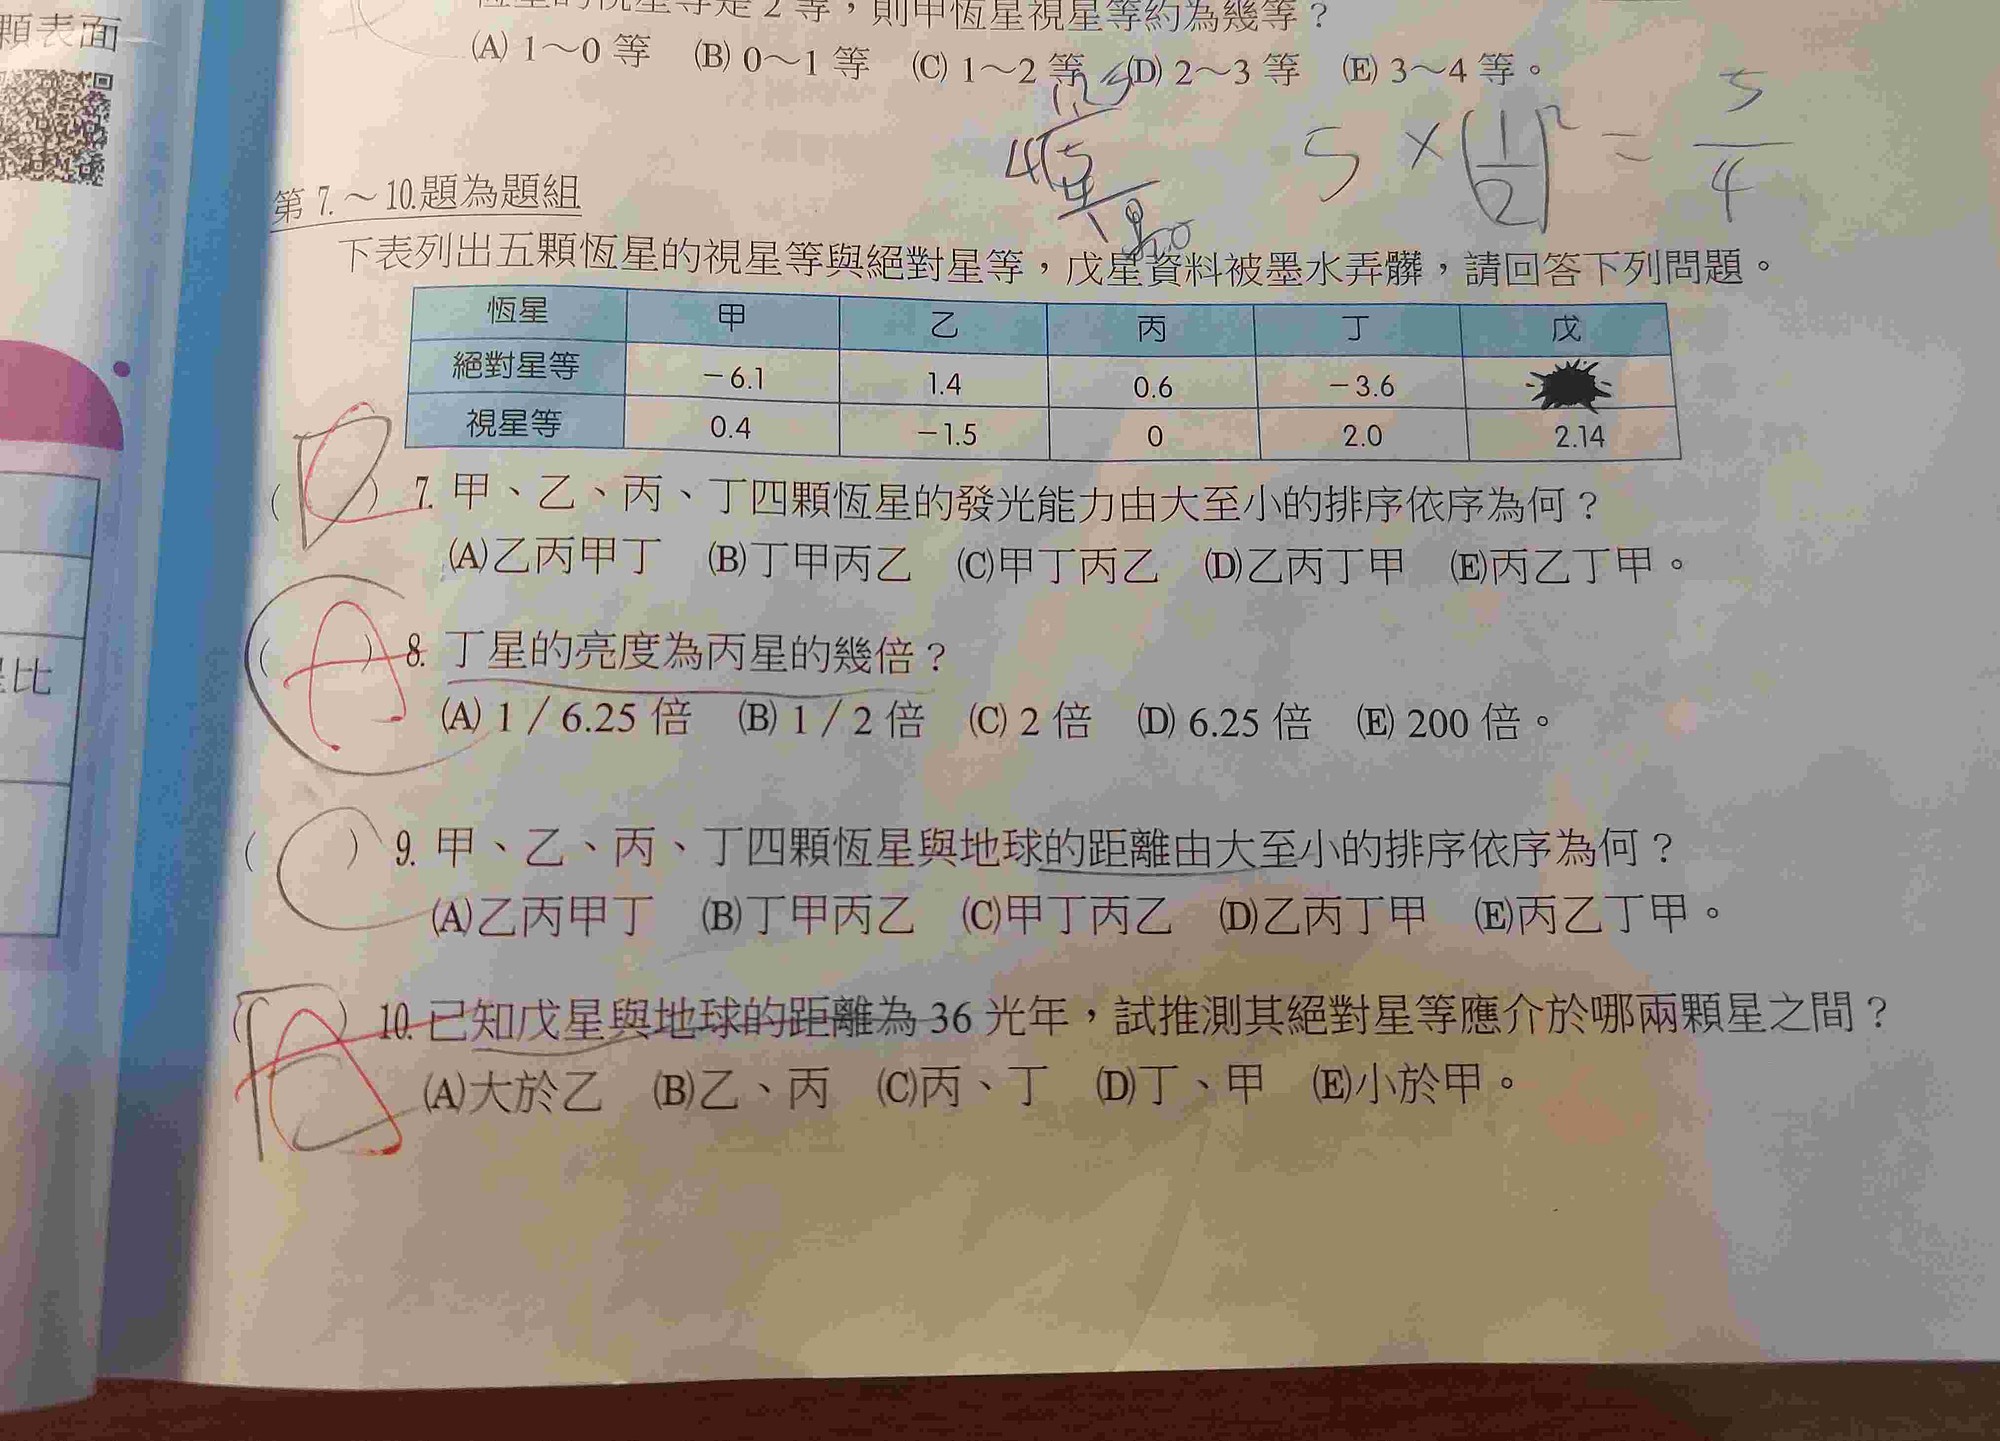 顆表面
是比
恆星的視星等是 2 等，則甲恆星視星等約為幾等？
(A) 1～0 等 (B) 0～1 等 (C) 1～2 等 (D) 2～3 等 (E) 3～4 等。
5 × (1/2)² = 5/4
第 7.～10.題為題組
下表列出五顆恆星的視星等與絕對星等，戊星資料被墨水弄髒，請回答下列問題。
恆星 甲 乙 丙 丁 戊
絕對星等 －6.1 1.4 0.6 －3.6
視星等 0.4 －1.5 0 2.0 2.14
( ) 7. 甲、乙、丙、丁四顆恆星的發光能力由大至小的排序依序為何？
(A)乙丙甲丁 (B)丁甲丙乙 (C)甲丁丙乙 (D)乙丙丁甲 (E)丙乙丁甲。
( A ) 8. 丁星的亮度為丙星的幾倍？
(A) 1／6.25 倍 (B) 1／2 倍 (C) 2 倍 (D) 6.25 倍 (E) 200 倍。
( ) 9. 甲、乙、丙、丁四顆恆星與地球的距離由大至小的排序依序為何？
(A)乙丙甲丁 (B)丁甲丙乙 (C)甲丁丙乙 (D)乙丙丁甲 (E)丙乙丁甲。
( A ) 10. 已知戊星與地球的距離為 36 光年，試推測其絕對星等應介於哪兩顆星之間？
(A)大於乙 (B)乙、丙 (C)丙、丁 (D)丁、甲 (E)小於甲。